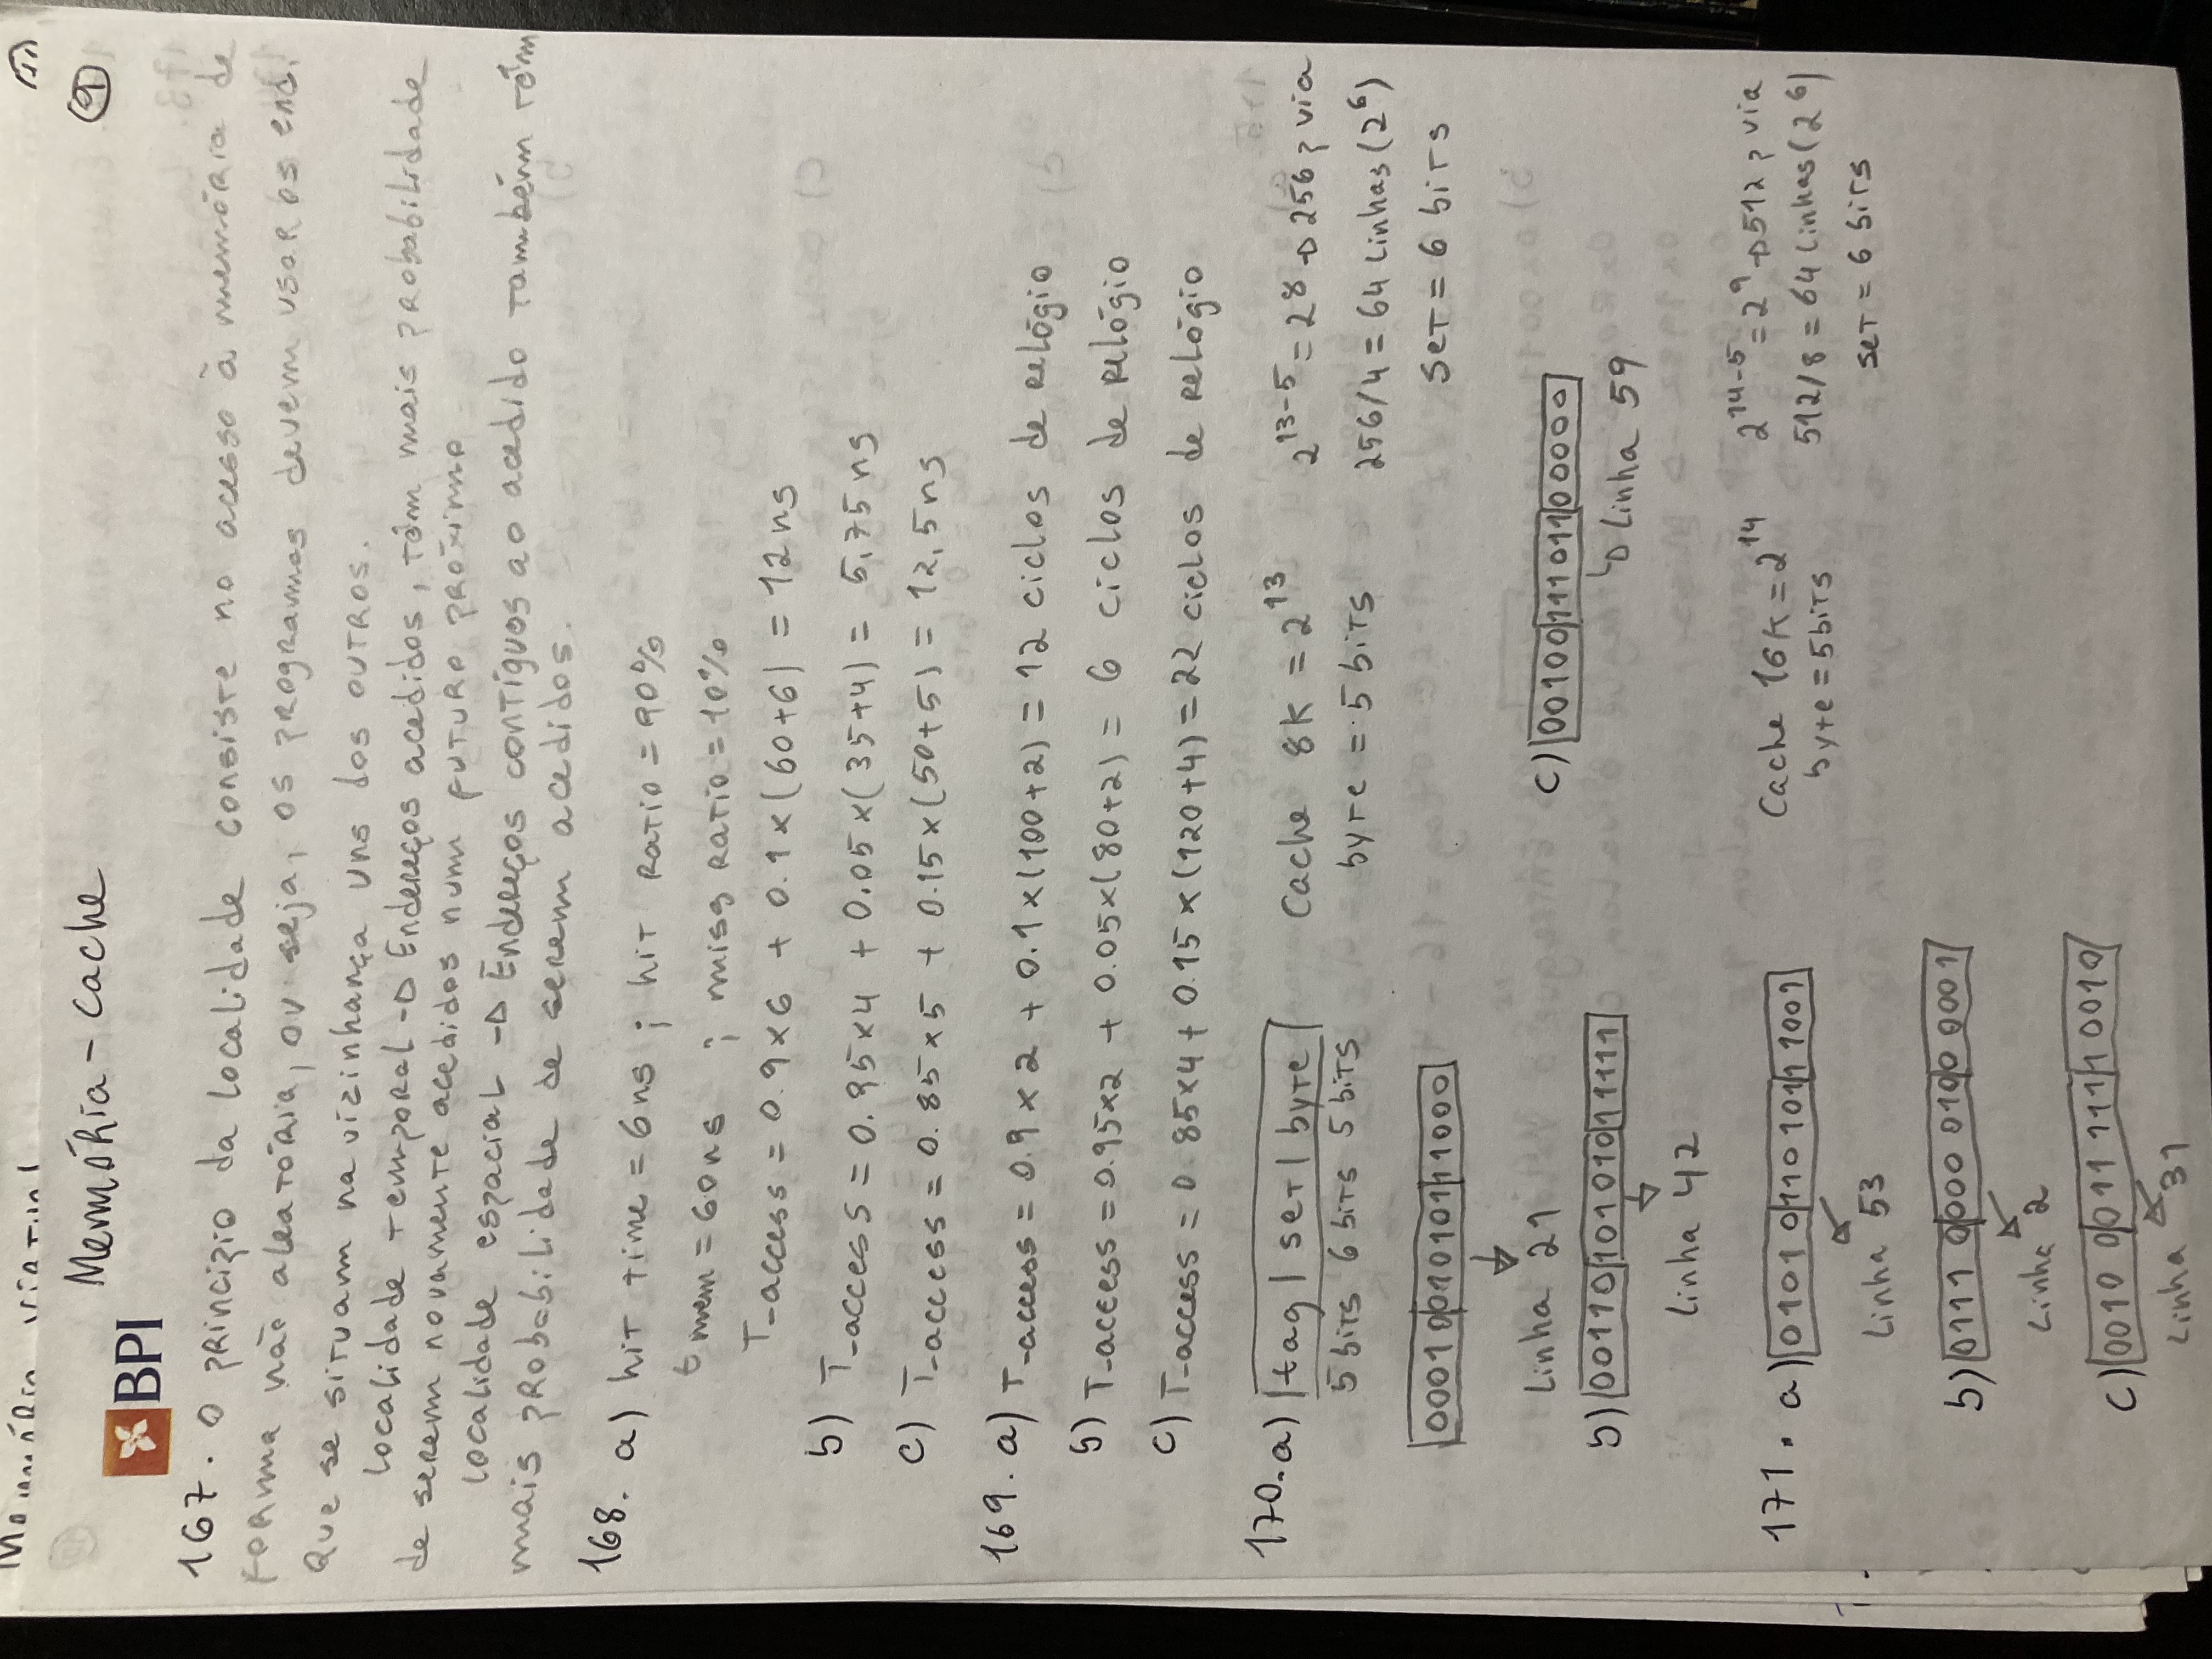 Memória Virtual
11
Memória - Cache
9
BPI
167. O princípio da localidade consiste no acesso à memória de
forma não aleatória, ou seja, os programas devem usar os end.
que se situam na vizinhança uns dos outros.
Localidade temporal -> Endereços acedidos, têm mais probabilidade
de serem novamente acedidos num futuro próximo
Localidade espacial -> Endereços contíguos ao acedido também têm
mais probabilidade de serem acedidos.
168. a) hit time = 6ns ; hit ratio = 90%
t mem = 60ns ; miss ratio = 10%
T_access = 0.9x6 + 0.1x(60+6) = 12 ns
b) T_access = 0.95x4 + 0.05x(35+4) = 5,75 ns
c) T_access = 0.85x5 + 0.15x(50+5) = 12,5ns
169. a) T_access = 0.9 x 2 + 0.1x(100+2) = 12 ciclos de relógio
b) T_access = 0.95x2 + 0.05x(80+2) = 6 ciclos de relógio
c) T_access = 0.85x4 + 0.15x(120+4) = 22 ciclos de relógio
170. a) |tag| set| byte| Cache 8K = 2^13 2^13-5 = 2^8 -> 256 p/ via
5 bits 6 bits 5 bits byte = 5 bits 256/4 = 64 linhas (2^6)
00010|010101|11000 set = 6 bits
Linha 21
c) |00100|111011|00000|
b) |00110|101010|11111| Linha 59
Linha 42
171. a) |0101 0|110 101|1 1001| Cache 16K = 2^14 2^14-5 = 2^9 -> 512 p/ via
byte = 5bits 512/8 = 64 linhas (2^6)
Linha 53 set = 6 bits
b) |0111 0|000 010|0 0001|
Linha 2
c) |0010 0|011 111|1 0010|
Linha 31